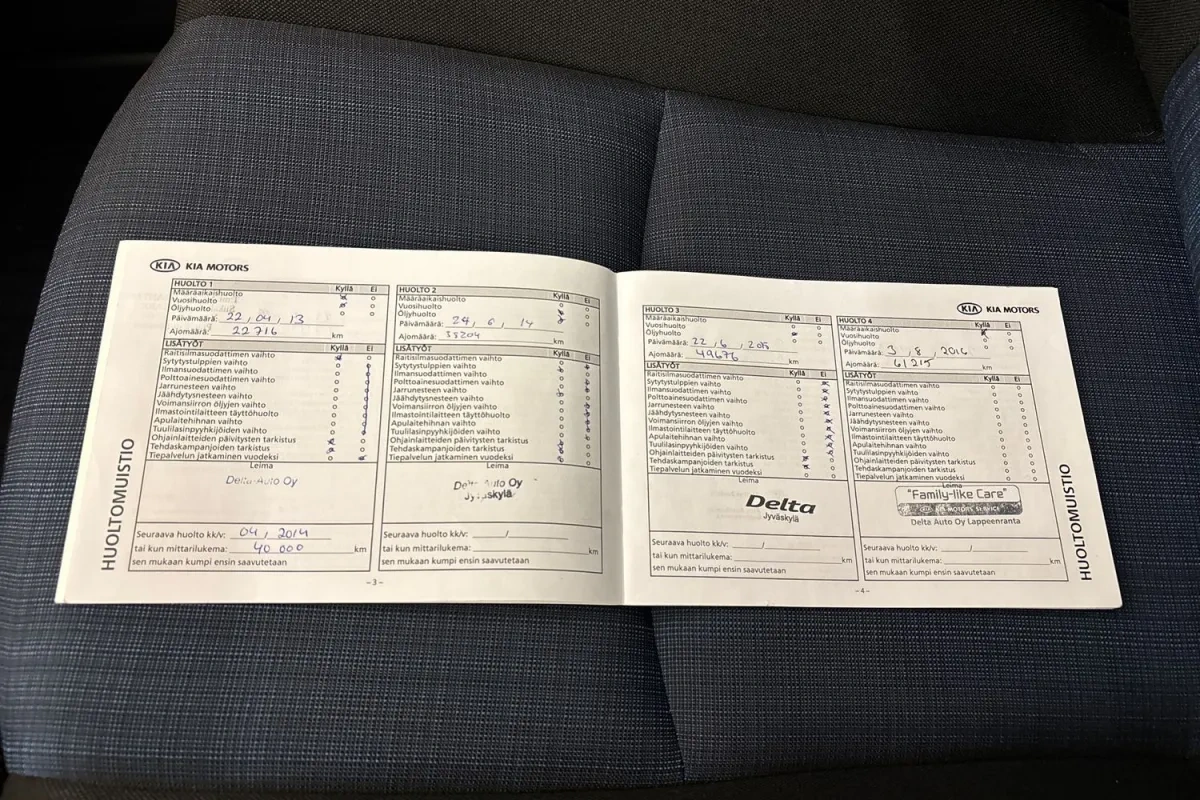 KIA KIA MOTORS
HUOLTOMUISTIO
HUOLTO 1 Kyllä Ei
Määräaikaishuolto
Vuosihuolto
Öljyhuolto
Päivämäärä: 22, 04, 13
Ajomäärä: 22716 km
LISÄTYÖT Kyllä Ei
Raitisilmasuodattimen vaihto
Sytytystulppien vaihto
Ilmansuodattimen vaihto
Polttoainesuodattimen vaihto
Jarrunesteen vaihto
Jäähdytysnesteen vaihto
Voimansiirron öljyjen vaihto
Ilmastointilaitteen täyttöhuolto
Apulaitehihnan vaihto
Tuulilasinpyyhkijöiden vaihto
Ohjainlaitteiden päivitysten tarkistus
Tehdaskampanjoiden tarkistus
Tiepalvelun jatkaminen vuodeksi
Leima
Delta-Auto Oy
Seuraava huolto kk/v: 04, 2014
tai kun mittarilukema: 40 000 km
sen mukaan kumpi ensin saavutetaan
HUOLTO 2 Kyllä Ei
Määräaikaishuolto
Vuosihuolto
Öljyhuolto
Päivämäärä: 24, 6, 14
Ajomäärä: 38204 km
LISÄTYÖT Kyllä Ei
Raitisilmasuodattimen vaihto
Sytytystulppien vaihto
Ilmansuodattimen vaihto
Polttoainesuodattimen vaihto
Jarrunesteen vaihto
Jäähdytysnesteen vaihto
Voimansiirron öljyjen vaihto
Ilmastointilaitteen täyttöhuolto
Apulaitehihnan vaihto
Tuulilasinpyyhkijöiden vaihto
Ohjainlaitteiden päivitysten tarkistus
Tehdaskampanjoiden tarkistus
Tiepalvelun jatkaminen vuodeksi
Leima
Auto Oy
Jyväskylä
Seuraava huolto kk/v: /
tai kun mittarilukema: km
sen mukaan kumpi ensin saavutetaan
-3-
KIA KIA MOTORS
HUOLTO 3 Kyllä Ei
Määräaikaishuolto
Vuosihuolto
Öljyhuolto
Päivämäärä: 22, 6, 2015
Ajomäärä: 49676 km
LISÄTYÖT Kyllä Ei
Raitisilmasuodattimen vaihto
Sytytystulppien vaihto
Ilmansuodattimen vaihto
Polttoainesuodattimen vaihto
Jarrunesteen vaihto
Jäähdytysnesteen vaihto
Voimansiirron öljyjen vaihto
Ilmastointilaitteen täyttöhuolto
Apulaitehihnan vaihto
Tuulilasinpyyhkijöiden vaihto
Ohjainlaitteiden päivitysten tarkistus
Tehdaskampanjoiden tarkistus
Tiepalvelun jatkaminen vuodeksi
Leima
Delta
Jyväskylä
Seuraava huolto kk/v: /
tai kun mittarilukema: km
sen mukaan kumpi ensin saavutetaan
HUOLTO 4 Kyllä Ei
Määräaikaishuolto
Vuosihuolto
Öljyhuolto
Päivämäärä: 3, 8, 2016
Ajomäärä: 61215 km
LISÄTYÖT Kyllä Ei
Raitisilmasuodattimen vaihto
Sytytystulppien vaihto
Ilmansuodattimen vaihto
Polttoainesuodattimen vaihto
Jarrunesteen vaihto
Jäähdytysnesteen vaihto
Voimansiirron öljyjen vaihto
Ilmastointilaitteen täyttöhuolto
Apulaitehihnan vaihto
Tuulilasinpyyhkijöiden vaihto
Ohjainlaitteiden päivitysten tarkistus
Tehdaskampanjoiden tarkistus
Tiepalvelun jatkaminen vuodeksi
Leima
"Family-like Care"
KIA KIA MOTORS SERVICE
Delta Auto Oy Lappeenranta
Seuraava huolto kk/v: /
tai kun mittarilukema: km
sen mukaan kumpi ensin saavutetaan
HUOLTOMUISTIO
-4-